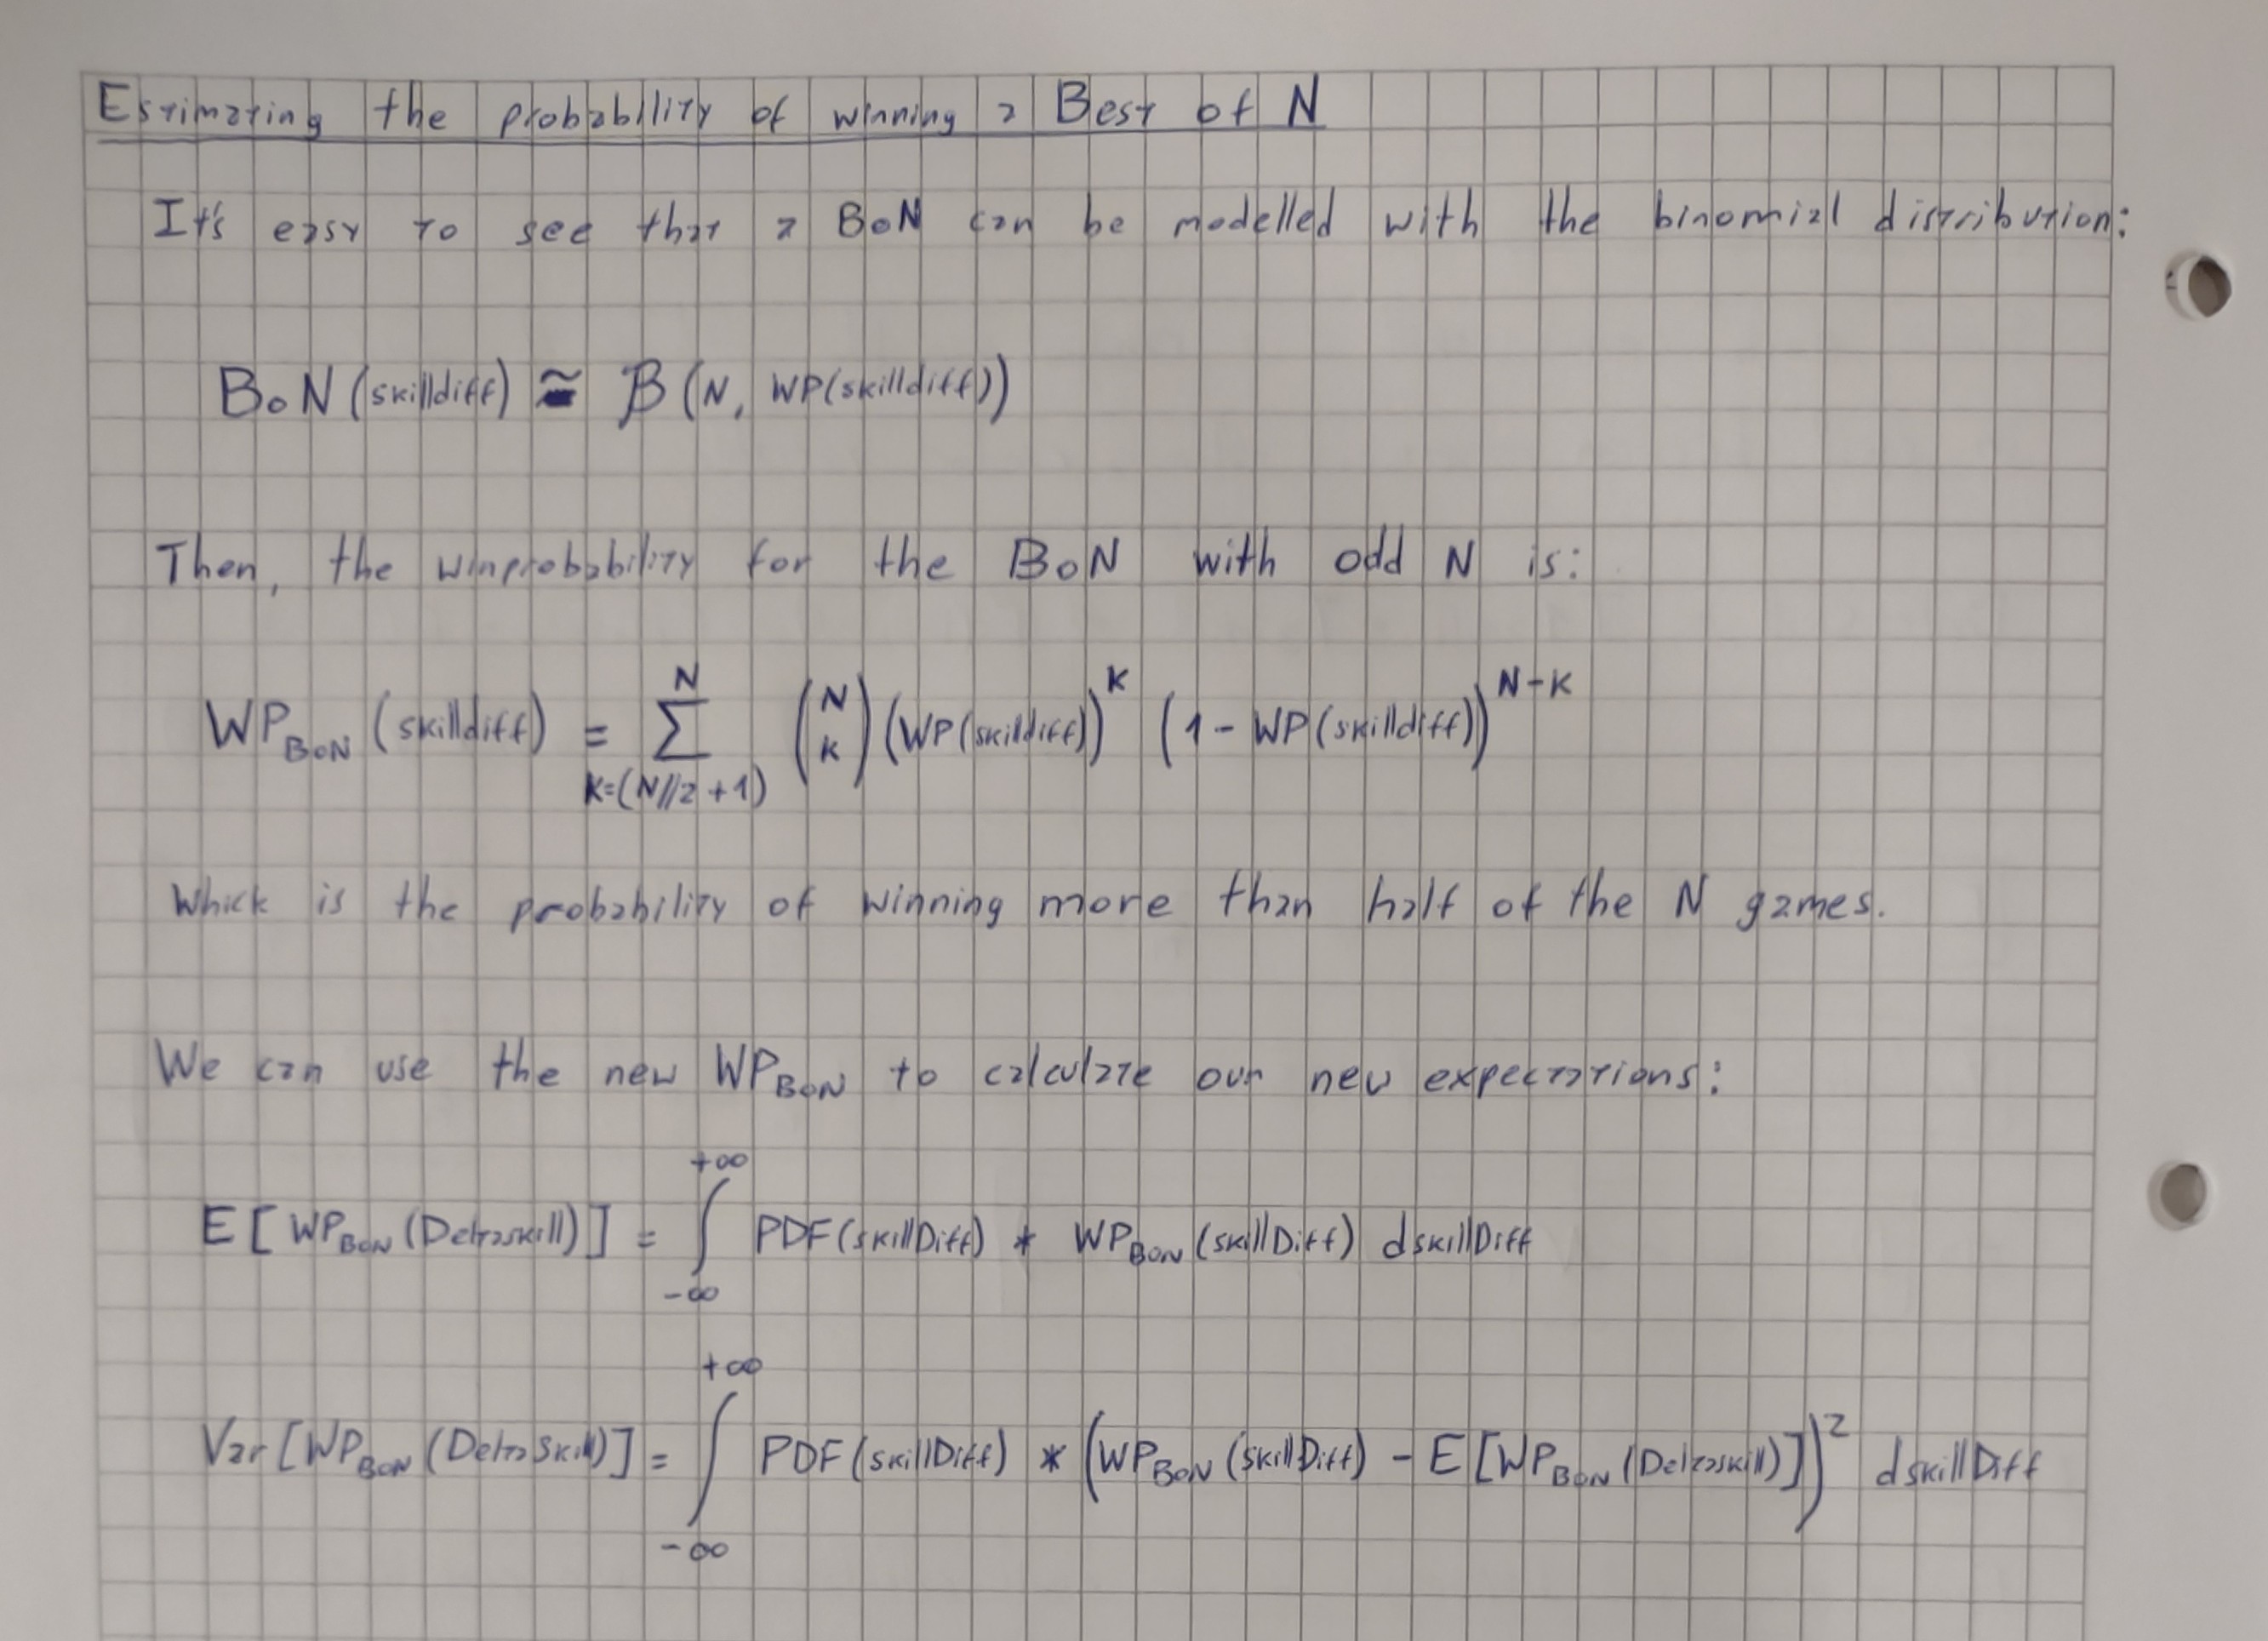 Estimating the probability of winning a Best of N
It's easy to see that a BoN can be modelled with the binomial distribution:
BoN (skilldiff) ≅ B (N, WP(skilldiff))
Then, the winprobability for the BoN with odd N is:
WP_BoN (skilldiff) = ∑_{K=(N//2+1)}^{N} (N K) (WP(skilldiff))^K (1 - WP(skilldiff))^{N-K}
Which is the probability of winning more than half of the N games.
We can use the new WP_BoN to calculate our new expectations:
E [ WP_BoN (Deltaskill) ] = ∫_{-∞}^{+∞} PDF(skillDiff) * WP_BoN (skillDiff) dskillDiff
Var [WP_BoN (DeltaSkill)] = ∫_{-∞}^{+∞} PDF(skillDiff) * (WP_BoN (skillDiff) - E [WP_BoN (Deltaskill)])^2 dskillDiff